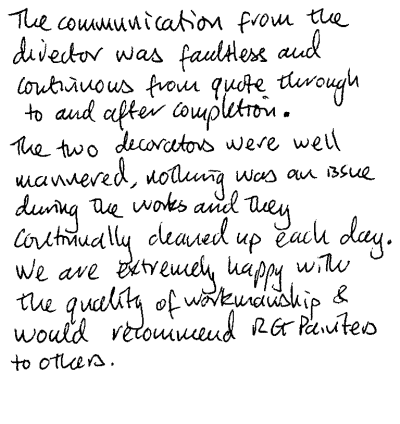 The communication from the
director was faultless and
continuous from quote through
to and after completion.
The two decorators were well
mannered, nothing was an issue
during the works and they
continually cleaned up each day.
We are extremely happy with
the quality of workmanship &
would recommend RG Painters
to others.